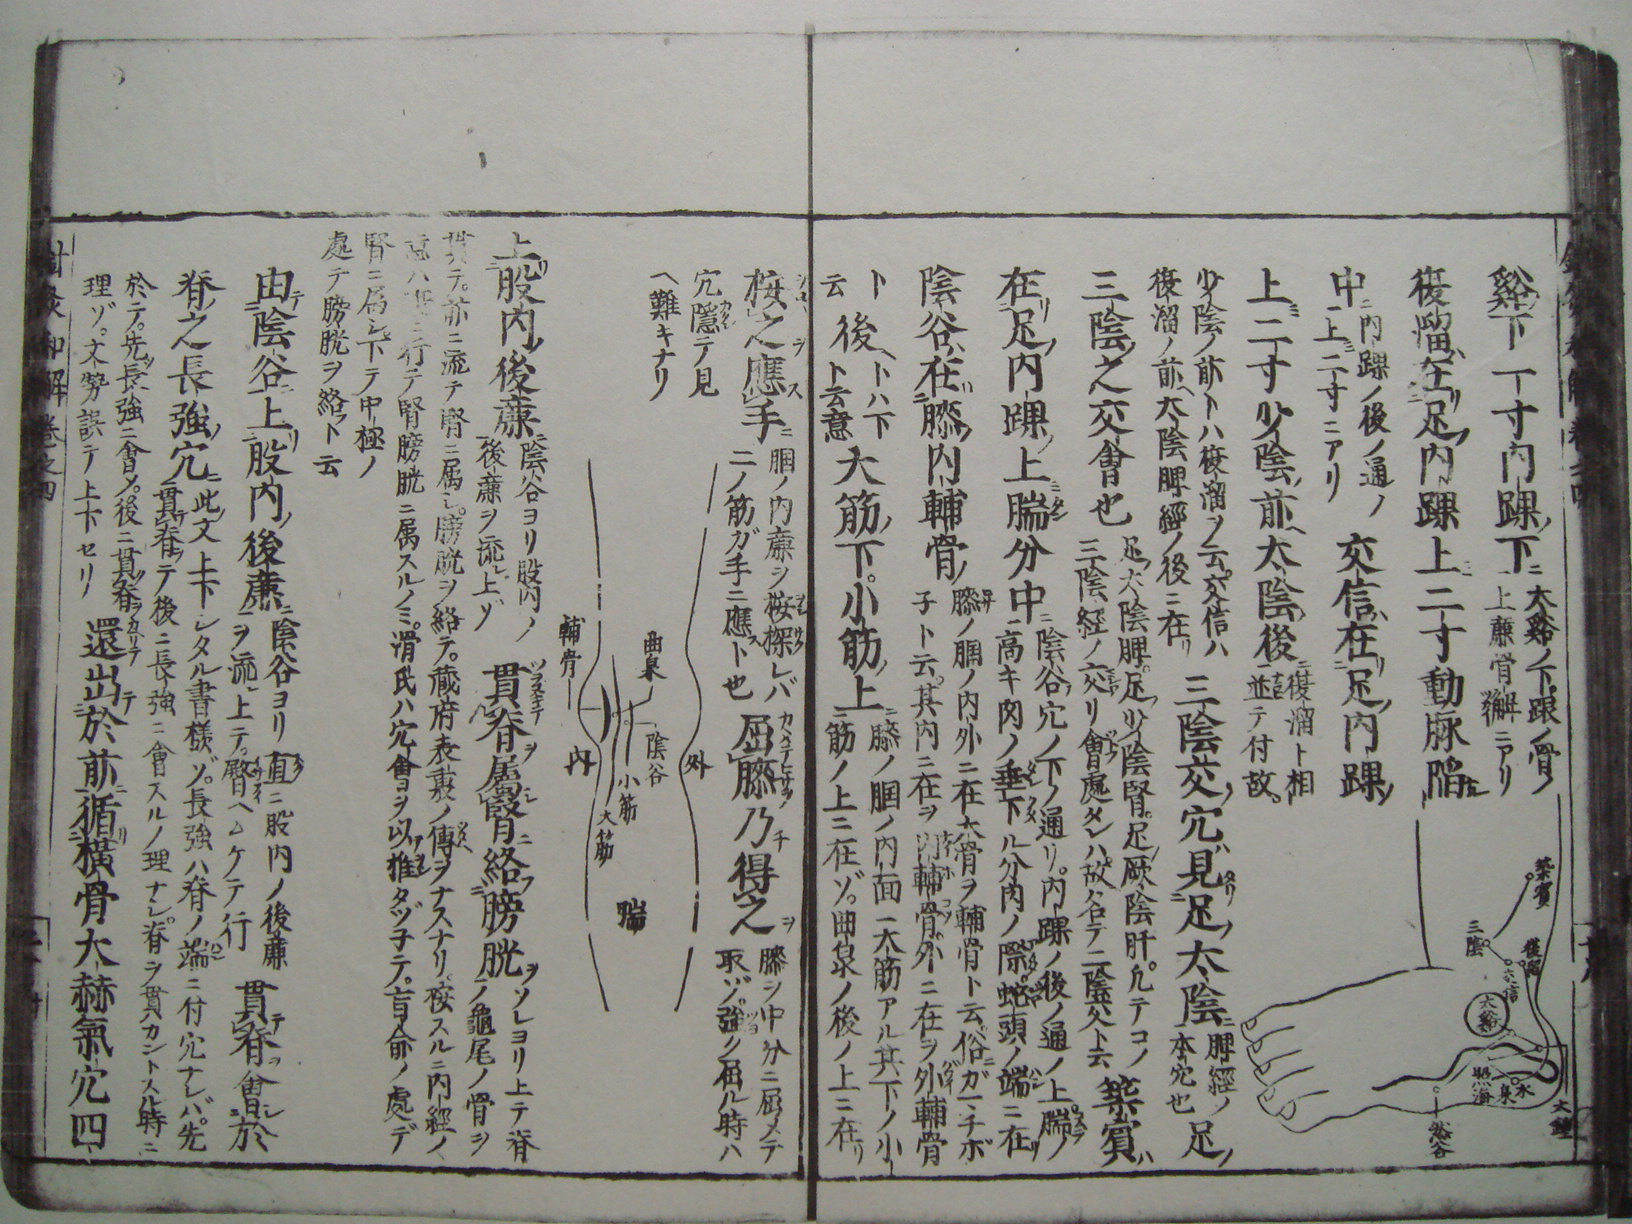 谿下一寸内踝ノ下ニ 大谿ノ下跟ノ骨ノ
上廉骨ノ罅ニアリ
復溜ハ在足ノ内踝ノ上二寸動脉陷
中ニ 内踝ノ後ノ通ノ
上二寸ニアリ
交信ハ在足ノ内踝ノ
上二寸少陰ノ前太陰ノ後ニ 復溜ト相
並テ付故
少陰ノ前トハ復溜ヲ云交信ハ
復溜ノ前太陰脾經ノ後ニ在リ
三陰ノ之交會也
足太陰脾足少陰腎足厥陰肝凡テコノ
三陰経ノ交リ會處タレハ故名テ三陰交ト云
三陰交ノ穴ハ見足ノ太陰ニ 脾經ノ
本穴也
築賓ハ
在足ノ内踝ノ上腨分ノ中ニ
陰谷穴ノ下ノ通リ内踝ノ後ノ通ノ上腨ノ
高キ肉ノ垂下ル分肉ノ際蛇頭ノ端ニ在リ
陰谷ハ在膝ノ内輔骨ノ
膝ノ膕ノ内外ニ在大骨ヲ輔骨ト云俗ガニチボ
子ト云其内ニ在ヲ内輔骨外ニ在ヲ外輔骨
ト云
後ヘトハ下
ト云意
大筋ノ下小筋ノ上ニ
膝ノ膕ノ内面ニ大筋アル其下ノ小
筋ノ上ニ在ゾ曲泉ノ後ノ上ニ在リ
按之應手ニ
膕ノ内廉ヲ按探レバ
二ノ筋ガ手ニ應スト也
屈膝乃得之ヲ
膝ヲ中分ニ屈メテ
取ゾ強ク屈ル時ハ
穴隱テ見
ヘ難キナリ
外
曲泉
陰谷
小筋
大筋
腨
内
輔骨
上股内ノ後廉
陰谷ヨリ股内ノ
後廉ヲ流上ゾ
貫脊ヲ属腎ニ絡膀胱ヲ
ソレヨリ上テ脊
ノ亀尾ノ骨ヲ
貫テ前ニ流テ腎ニ属シ膀胱ヲ絡テ蔵府表裏ノ傳ヲナスナリ按スルニ内經ノ
行テ腎膀胱ニ属スルノミ滑氏ハ穴會ヨヲ以推タゾ子テ肓兪ノ處デ
腎ニ属シ下テ中極ノ
處テ膀胱ヲ絡ト云
由テ陰谷上リ股内ノ後廉ニ
陰谷ヨリ直ニ股内ノ後廉
ヲ流上テ臀ヘムケテ行
貫テ脊ヲ會シ於
脊ノ之長強ノ穴ニ
此文上下シタル書様ゾ長強ハ脊ノ端ニ付穴ナレバ先
貫脊テ後ニ長強ニ會スルノ理ナシ脊ヲ貫カントスル時ニ
於テ先長強ニ會メ後ニ貫脊
理ゾ文勢誤テ上下セリ
還出テ於前ニ循横骨大赫氣穴四
築賓
三陰
復溜
交信
大谿
照海
水泉
太鐘
然谷